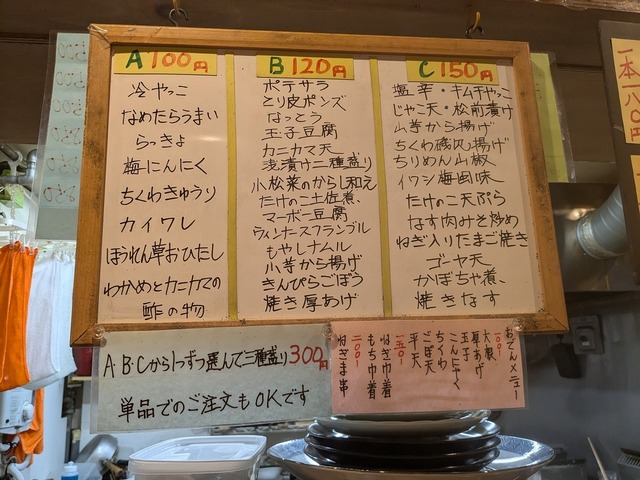 A 100円
冷やっこ
なめたらうまい
らっきょ
梅にんにく
ちくわきゅうり
カイワレ
ほうれん草おひたし
わかめとカニカマの
酢の物
B 120円
ポテサラ
とり皮ポンズ
なっとう
玉子豆腐
カニカマ天
浅漬け二種盛り
小松菜のからし和え
たけのこ土佐煮、
マーボー豆腐
ウィンナースクランブル
もやしナムル
小芋から揚げ
きんぴらごぼう
焼き厚あげ
C 150円
塩辛・キムチやっこ
じゃこ天・松前漬け
山芋から揚げ
ちくわ磯辺揚げ
ちりめん山椒
イワシ梅風味
たけのこ天ぷら
なす肉みそ炒め
ねぎ入りたまご焼き
ゴーヤ天
かぼちゃ煮、
焼きなす
A・B・Cから1つずつ選んで三種盛り300円
単品でのご注文もOKです
おでんメニュー
一〇〇
大根
厚あげ
玉子
こんにゃく
ちくわ
ごぼ天
平天
一五〇
ねぎ巾着
もち巾着
二〇〇
ねぎま串
一本一八〇円